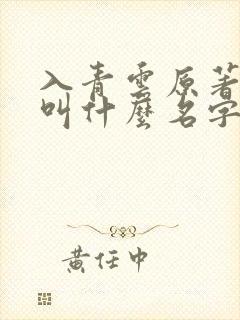 入青雲原著
叫什麼名字
黃任中